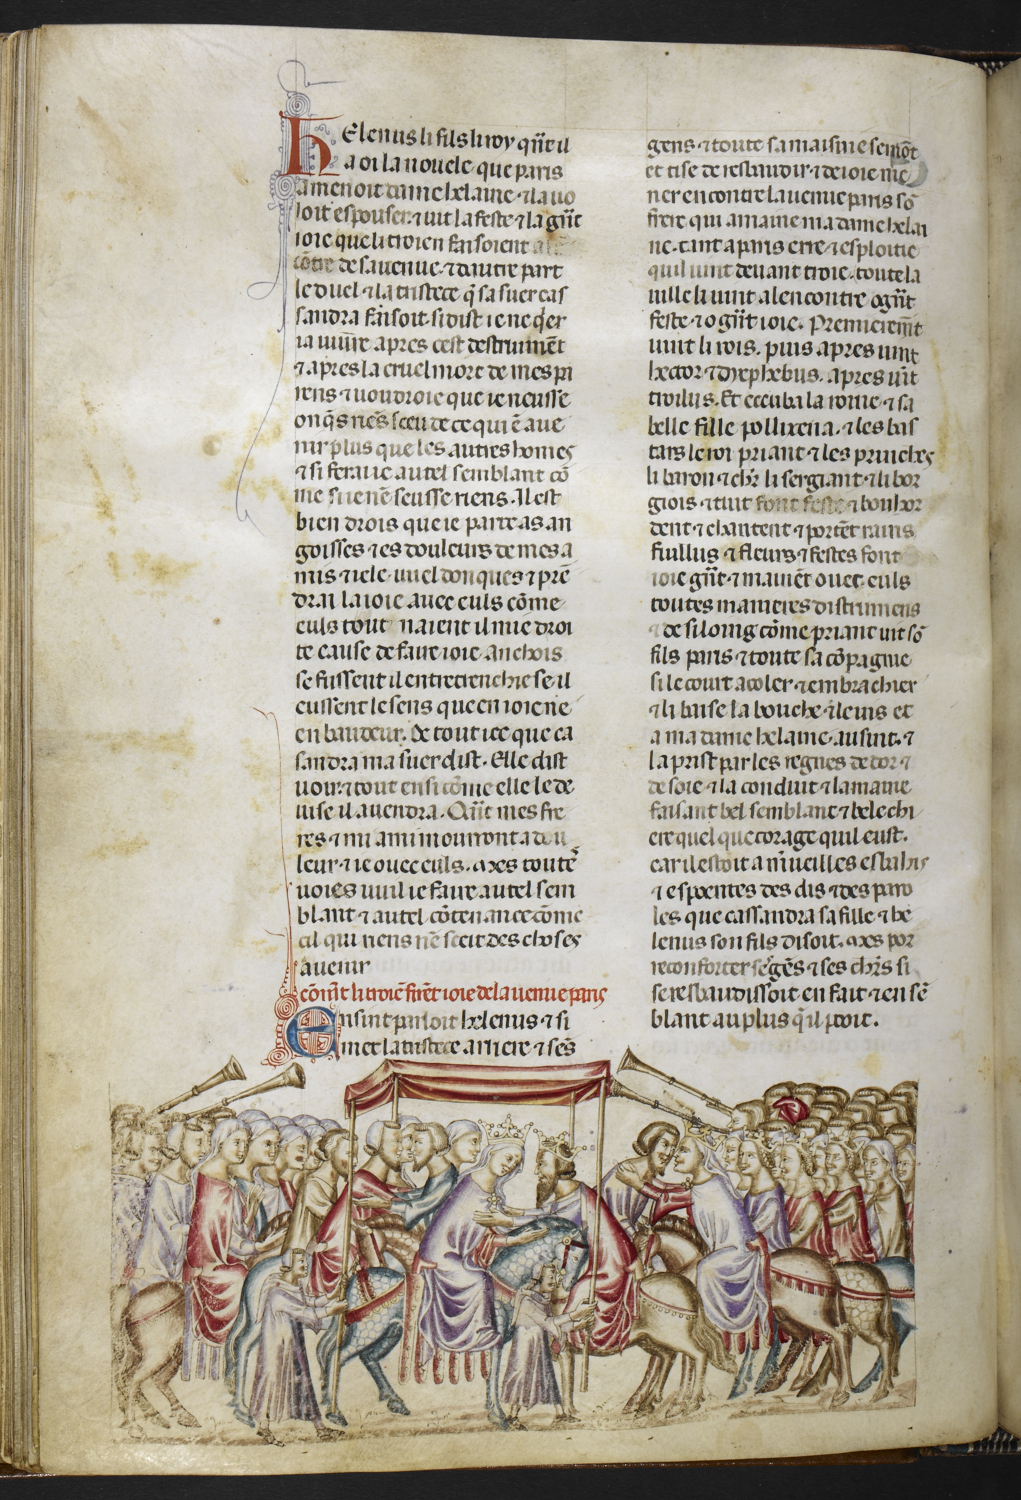 Helenus li fils li roy qñt il
a oi la nouele que paris
amenoit dame helaine ⁊ la uo
loit espouser ⁊ uit la feste ⁊ la gñt
ioie que li troien faisoient a
cōtre de sa uenue ⁊ dautre part
le duel ⁊ la tristece q̄ sa suer cas
sandra faisoit. si dist ie ne q̄er
ia uiure apres cest destruimēt
⁊ apres la cruel mort de mes pa
rens ⁊ uoudroie que ie neusse
onq̄s riēs sceu de ce qui ē aue
nir plus que les autres homes
⁊ si feraie autel semblant cō
me se ie nē seusse riens. Il est
bien drois que ie parte as an
goisses ⁊ es douleurs de mes a
mis ⁊ ie le uuel donques ⁊ prē
drai la ioie auec euls cōme
euls tout naient il mie droi
te cause de faire ioie. Anchois
se fussent il entretrenchie se il
eussent le sens que en ioie ne
en baudeur. De tout ice que ca
sandra ma suer dist. Elle dist
uoir ⁊ tout ensi cōme elle le de
uise il auendra. Qñt mes fre
res ⁊ mi ami mourront a dou
leur ⁊ ie ouec euls. mes toutē
uoies uuil ie faire autel sem
blant ⁊ autel cōtenance cōme
cil qui riens nē sceit des choses
auenir
cōmēt li troiē firēt ioie de la uenue paris
Ensint parloit helenus ⁊ si
met la tristece arriere ⁊ ses
gens ⁊ toute sa maisnie semōt
et tise de resbaudir ⁊ de ioie me
ner encontre la uenue paris sō
frere qui amaine madame helai
ne. tant a paris erre ⁊ esploitie
quil uint deuant troie. toute la
uille li uint alencontre o gñt
feste ⁊ o gñt ioie. Premieremēt
uint li rois. puis apres uint
hector ⁊ dyephebus. apres uīt
troilus. Et eccuba la roine ⁊ sa
belle fille pollixena. ⁊ les bas
tars le roi priant ⁊ les princhex
li baron ⁊ ch'r li sergiant ⁊ li bor
giois ⁊ tuit font feste ⁊ bouhor
dent ⁊ chantent ⁊ portēt rains
fiullus ⁊ fleurs ⁊ festes font
ioie gñt ⁊ mainēt ouec euls
toutes manieres distrumens
⁊ de si loing cōme priant uit sō
fils paris ⁊ toute sa cōpagnie
si le court acoler ⁊ embrachier
⁊ li baise la bouche ⁊ le uis et
a madame helaine. ausint. ⁊
la prist par les regnes de dor ⁊
de soie ⁊ la conduit ⁊ lamaine
faisant bel semblant ⁊ bele chi
ere quel que corage quil eust.
car il estoit a m'ueilles esbahis
⁊ espoentes des dis ⁊ des paro
les que cassandra sa fille ⁊ he
lenus son fils disoit. mes por
reconforter se gēs ⁊ ses ch'rs si
se resbaudissoit en fait ⁊ en sē
blant au plus q̄ il pooit.